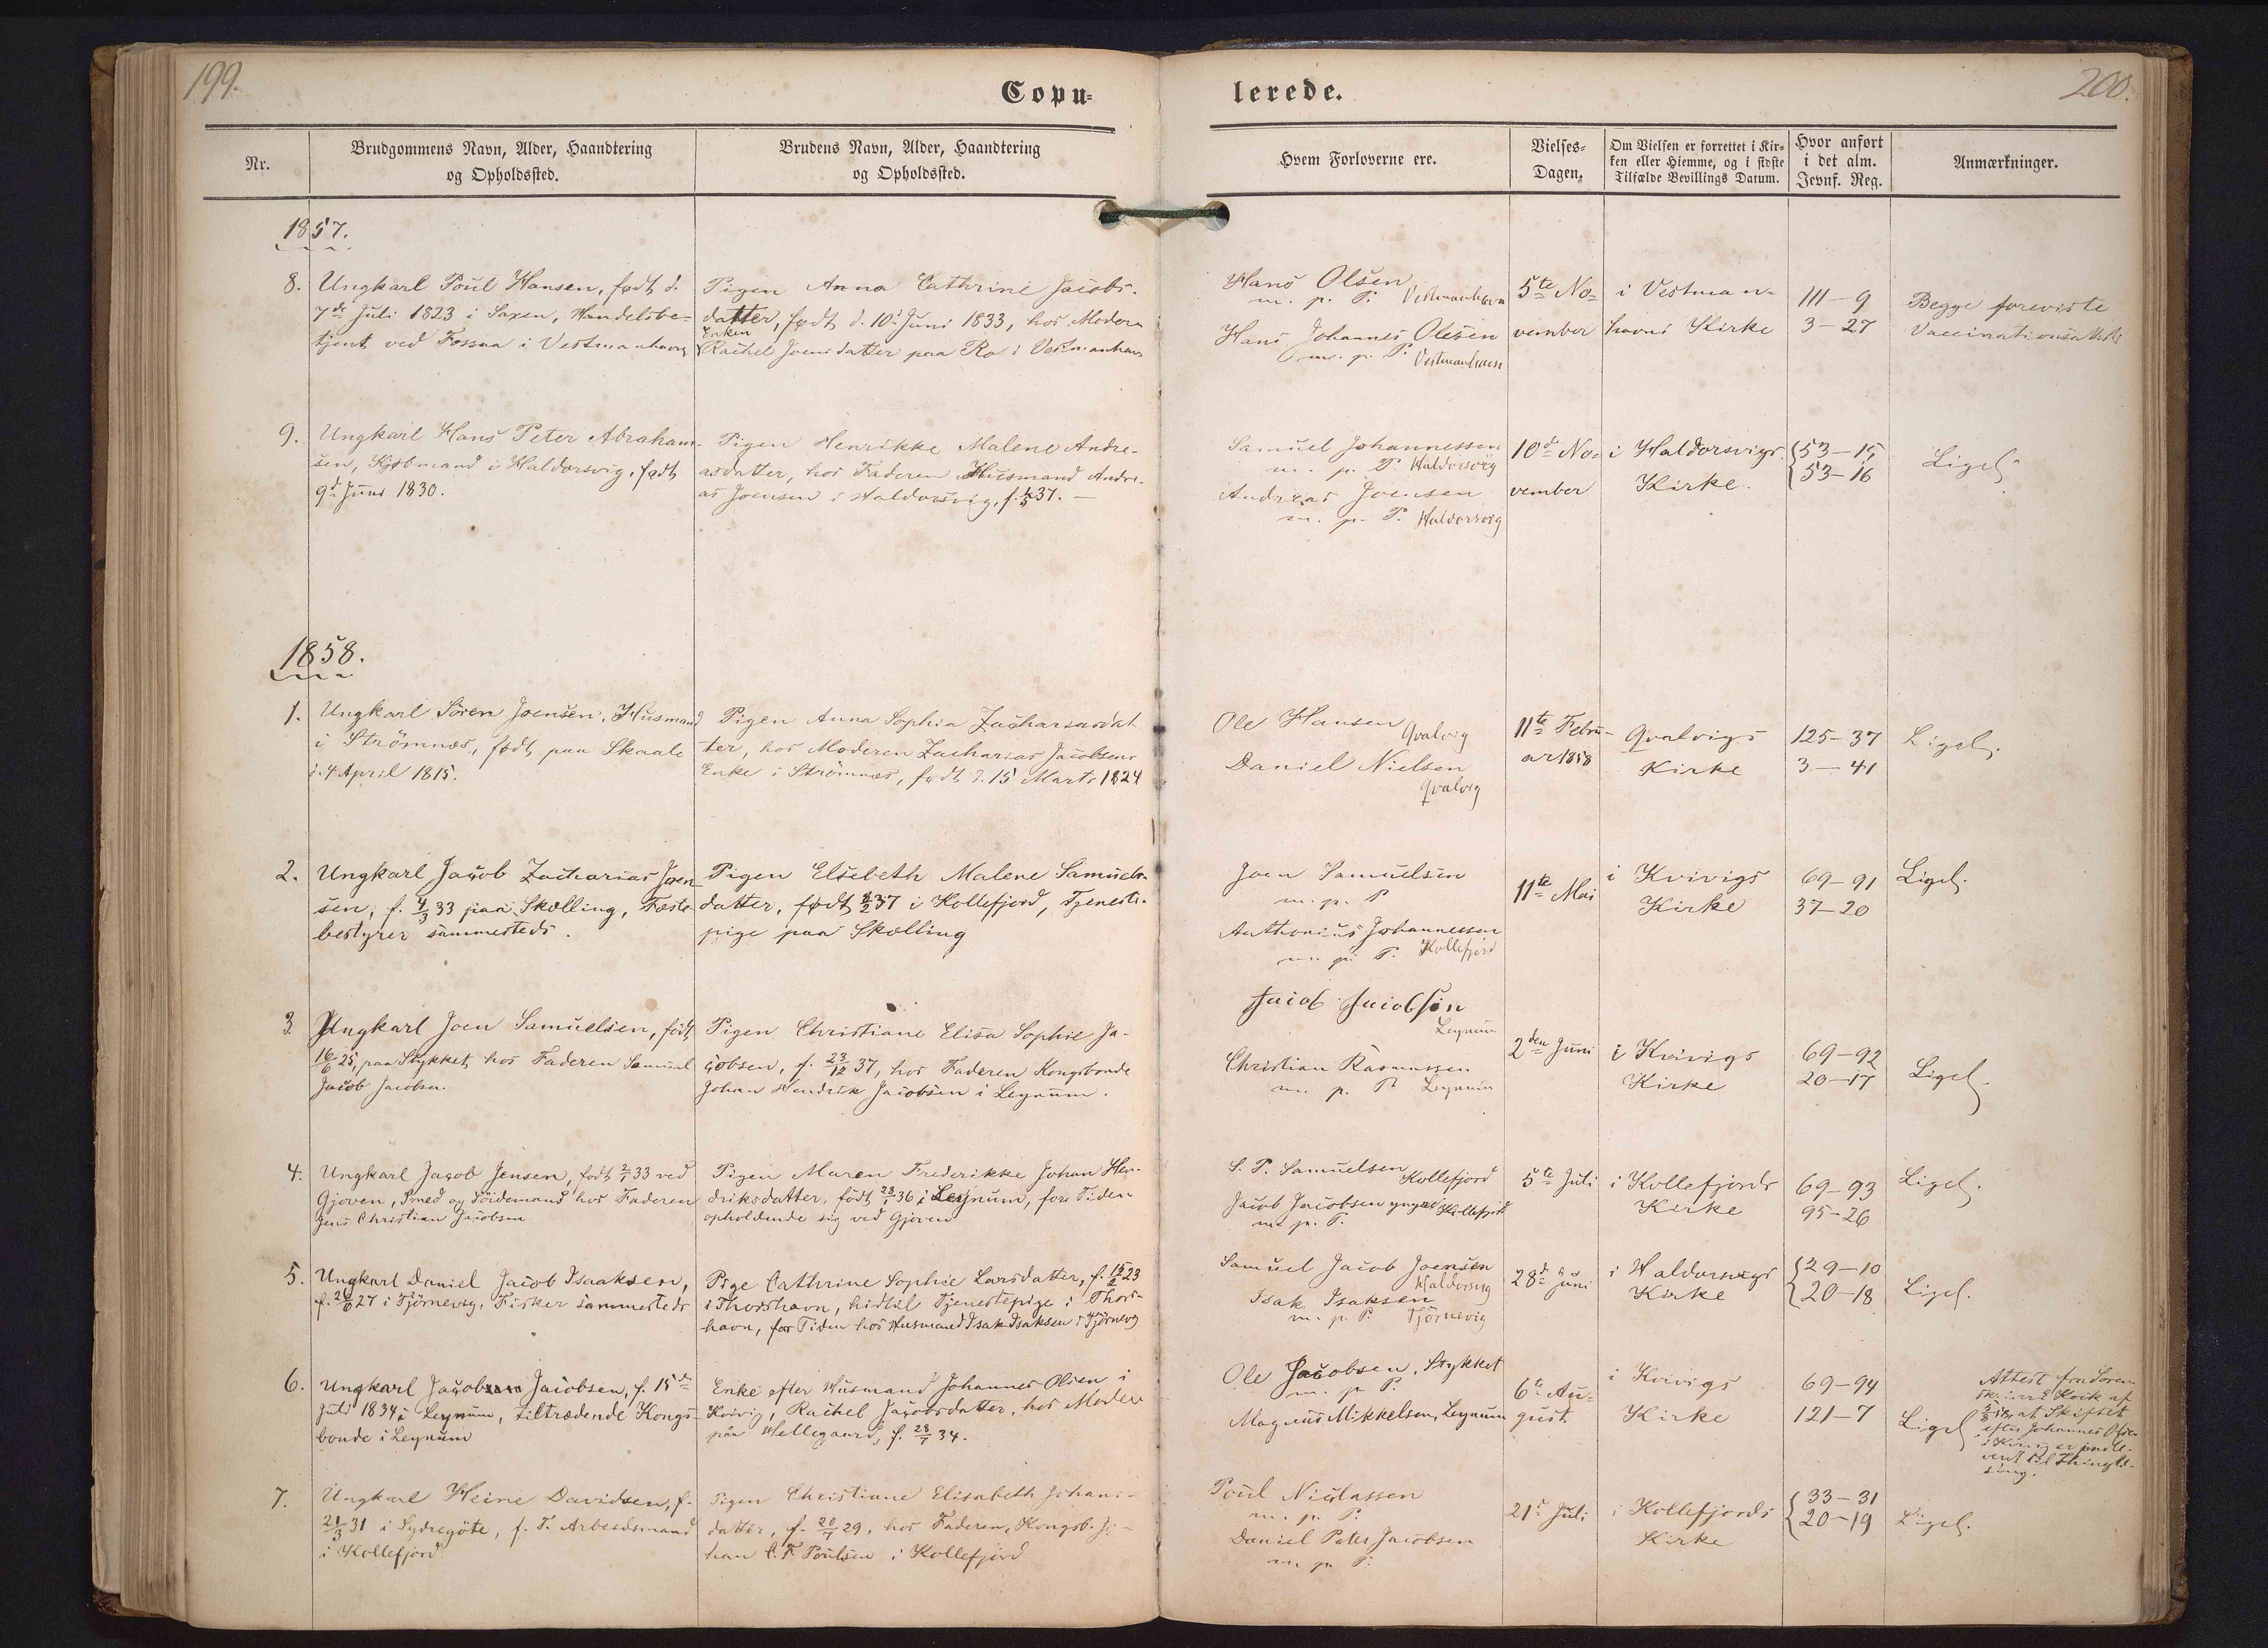 199.
Copu=
lerede.
200.
Nr.
Brudgommens Navn, Alder, Haandtering
og Opholdssted.
Brudens Navn, Alder, Haandtering
og Opholdssted.
Hvem Forloverne ere.
Vielses-
Dagen.
Om Vielsen er forrettet i Kir-
ken eller Hiemme, og i sidste
Tilfælde Bevillings Datum.
Hvor anført
i det alm.
Jevnf. Reg.
Anmærkninger.
1857.
8.
Ungkarl Poul Hansen, født d.
7de Juli 1823 i Saxen, Handelsbe-
tjent ved Fossaa i Vestmanhavn
Pigen Anna Cathrine Jacobs-
datter, født d. 10d Juni 1833, hos Moderen
Enken
Rachel Joensdatter paa Ro i Vestmanhavn
Hans Olsen
m. p. P. Vestmanhavn
Hans Johannes Olesen
m. p. P. Vestmanhavn
5te No-
vember
i Vestman-
havns Kirke
111-9
3-27
Begge foreviste
Vaccinationsattest
9.
Ungkarl Hans Peter Abraham-
sen, Kjøbmand i Haldorsvig, født
9d Juni 1830.
Pigen Henrikke Malene Andre-
asdatter, hos Faderen Husmand Andre-
as Joensen i Haldorsvig, f. 37. -
Samuel Johannessen
m. p. P. Haldorsvig
Andreas Joensen
m. p. P. Haldorsvig
10de No-
vember
i Haldorsvigs
Kirke.
53-15
53-16
Ligel.
1858.
1.
Ungkarl Sören Joensen, Husmand
i Strömnæs, født paa Skaale
d. 4 April 1815.
Pigen Anna Sophia Zachariasdat
ter, hos Moderen Zacharias Jacobsens
Enke i Strömnæs, født d. 15 Marts 1824
Ole Hansen
Qvalvig
Daniel Nielsen
Qvalvig
11te Febru-
ar 1858
Qvalvigs
Kirke
125-37
3-41
Ligel.
2.
Ungkarl Jacob Zacharias Joen-
sen, f. 4/3 33 paa Skælling, Fæste-
bestyrer sammesteds.
Pigen Elsebeth Malene Samuels-
datter, født 37 i Kollefjord, Tjeneste-
pige paa Skælling
Joen Samuelsen
m. p. P
Anthonius Johannessen
m. p. P. Kollefjord
11te Mai
i Kvivigs
Kirke
69-91
37-20
Ligel.
3.
Ungkarl Joen Samuelsen, født
16/6 25, paa Stykket, hos Faderen Samuel
Jacob Jacobsen.
Pigen Christiane Elisa Sophie Ja-
cobsen, f. 23/12 37, hos Faderen Kongsbonde
Johan Hendrik Jacobsen i Leynum.
Jacob Jacobsen
Leynum
Christian Rasmussen
m. p. P. Leynum
2den Juni
i Kvivigs
Kirke
69-92
20-17
Ligel.
4.
Ungkarl Jacob Jensen, født 2/1 33 ved
Gjoven, Smed og Södemand hos Faderen
Jens Christian Jacobsen
Pigen Maren Frederikke Johan Hen-
driksdatter, födt 28/1 36 i Leynum, for Tiden
opholdende sig ved Gjoven
S. P. Samuelsen
Kollefjord
Jacob Jacobsen yngre Kollefjord
m. p. P.
5te Juli
i Kollefjords
Kirke
69-93
95-26
Ligel.
5.
Ungkarl Daniel Jacob Isaaksen,
f. 27 i Tjörnevig, Fisker sammesteds
Pige Cathrine Sophie Larsdatter, f. 23
i Thorshavn, hidtil Tjenestepige i Thors-
havn, for Tiden hos Husmand Isak Isaksen i Tjörnevig
Samuel Jacob Joensen
Haldorsvig
Isak Isaksen
m. p. P. Tjörnevig
28d Juni
i Haldorsvigs
Kirke
29-10
20-18
Ligel.
6.
Ungkarl Jacob Jacobsen, f. 15de
Juli 1834 i Leynum, tiltrædende Kongs-
bonde i Leynum
Enke efter Husmand Johannes Olsen i
Kvivig, Rachel Jacobsdatter, hos Moder
paa Wellegaard, f. 34.
Ole Jacobsen, Stykket
m. p. P.
Magnus Mikkelsen, Leynum
6te Au-
gust
i Kvivigs
Kirke
69-94
121-7
Ligel.
Attest fra Soren-
af
at Skiftet
efter Johannes Olsen
i Kvivig
til Thinglæs-
7.
Ungkarl Heine Davidsen, f.
21/3 31 i Sydregöte, f. T. Arbeidsmand
i Kollefjord
Pigen Christiane Elisabeth Johans-
datter, f. 29, hos Faderen, Kongsb. Jo-
han C. F. Poulsen i Kollefjord
Poul Niclassen
m. p. P.
Daniel Peter Jacobsen
m. p. P.
21d Juli
i Kollefjords
Kirke
33-31
20-19
Ligel.